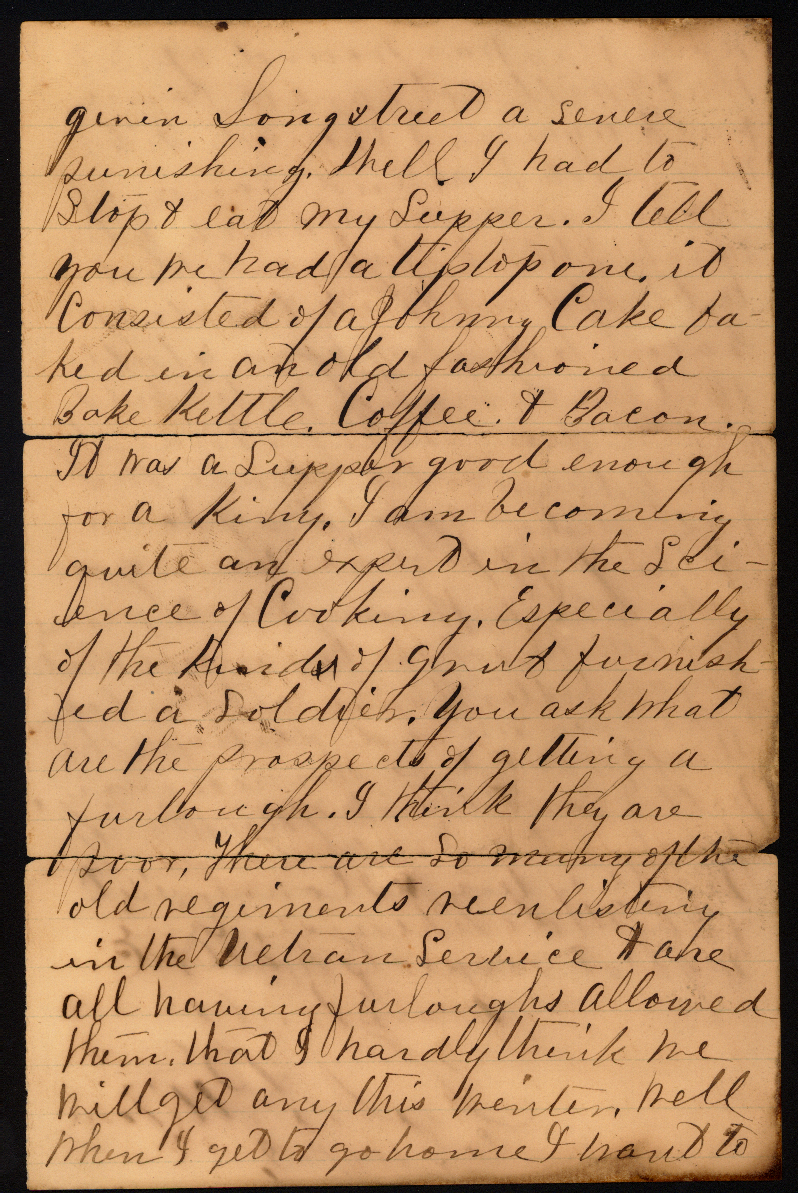 given Longstreet a severe
punishing. Well I had to
Stop & eat my Supper. I tell
you we had a tiptop one. it
Consisted of a Johnny Cake ba-
ked in an old fashioned
Bake Kettle. Coffee. & Bacon.
It was a Supper good enough
for a King. I am becoming
quite an expert in the Sci-
ence of Cooking. Especially
of the Kinds of Grub furnish-
ed a Soldier. You ask what
are the prospects of getting a
furlough. I think they are
poor, There are So many of the
old regiments reenlisting
in the Vetran Service & are
all having furloughs allowed
them. that I hardly think we
will get any this winter. Well
when I get to go home I want to